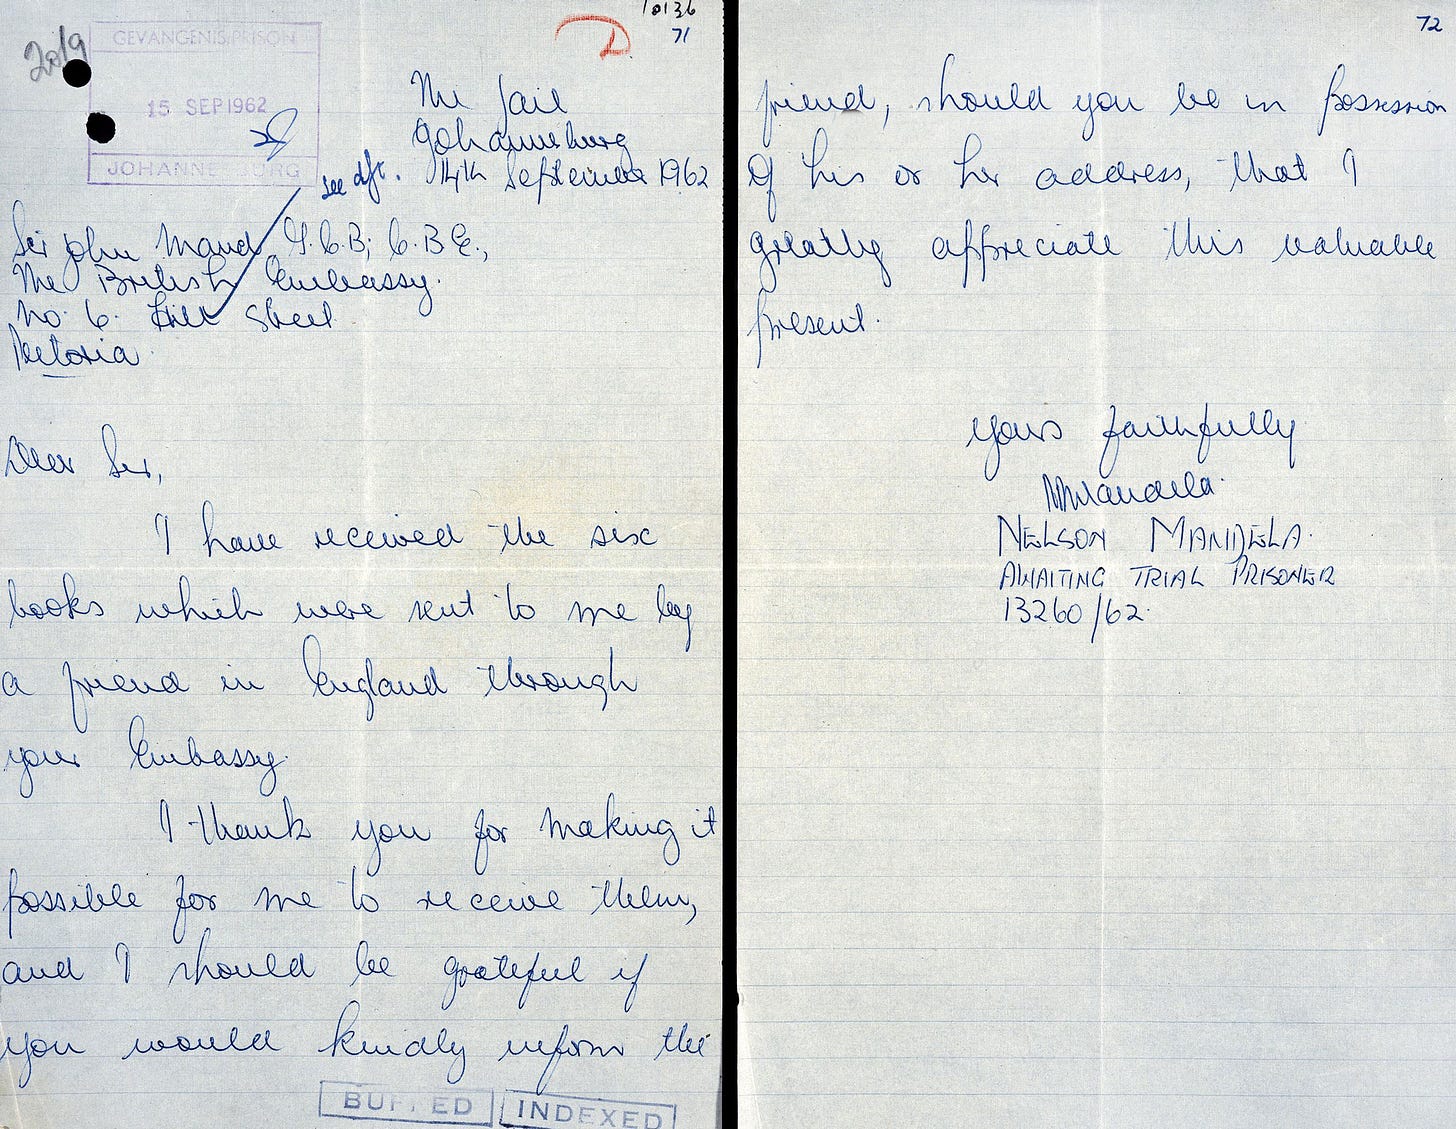 10136
71
2019
GEVANGENIS/PRISON
15 SEP 1962
JOHANNE BURG
The Jail
Johannesburg
see
14th September 1962
Sir John Maud G.C.B; C.B.E.,
The British Embassy.
No. 6. Hill Street
Pretoria.
Dear Sir,
I have received the six
books which were sent to me by
a friend in England through
your Embassy.
I thank you for making it
possible for me to receive them,
and I should be grateful if
you would kindly inform the
BUFFED INDEXED
72
friend, should you be in possession
of his or her address, that I
greatly appreciate this valuable
present.
Yours faithfully
NMandela.
NELSON MANDELA.
AWAITING TRIAL PRISONER
13260/62.